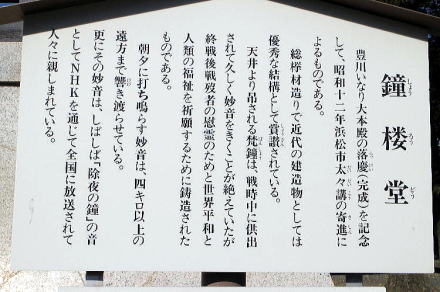 鐘楼堂
豊川いなり大本殿の落慶(完成)を記念
して、昭和十二年浜松市太々講の寄進に
よるものである。
総欅材造りで近代の建造物としては
優秀な結構として賞讃されている。
天井より吊される梵鐘は、戦時中に供出
されて久しく妙音をきくことが絶えていたが
終戦後戦歿者の慰霊のためと世界平和と
人類の福祉を祈願するために鋳造された
ものである。
朝夕に打ち鳴らす妙音は、四キロ以上の
遠方まで響き渡らせている。
更にその妙音は、しばしば「除夜の鐘」の音
としてNHKを通じて全国に放送されて
人々に親しまれている。